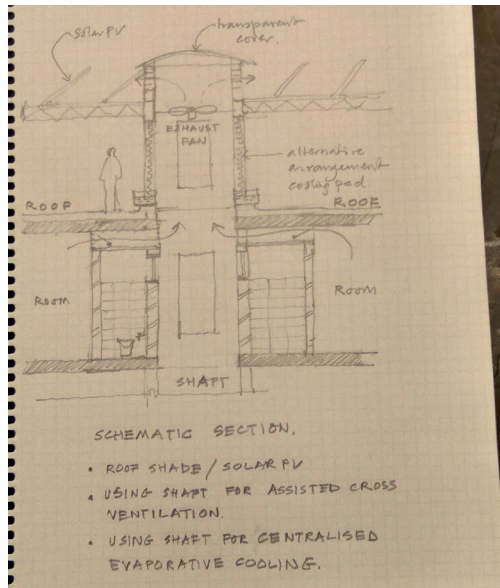 solar PV
transparent
cover.
EXHAUST
FAN
alternative
arrangement
cooling pad
ROOF
ROOF
ROOM
ROOM
SHAFT
SCHEMATIC SECTION.
• ROOF SHADE / SOLAR PV
• USING SHAFT FOR ASSISTED CROSS
VENTILATION.
• USING SHAFT FOR CENTRALISED
EVAPORATIVE COOLING.